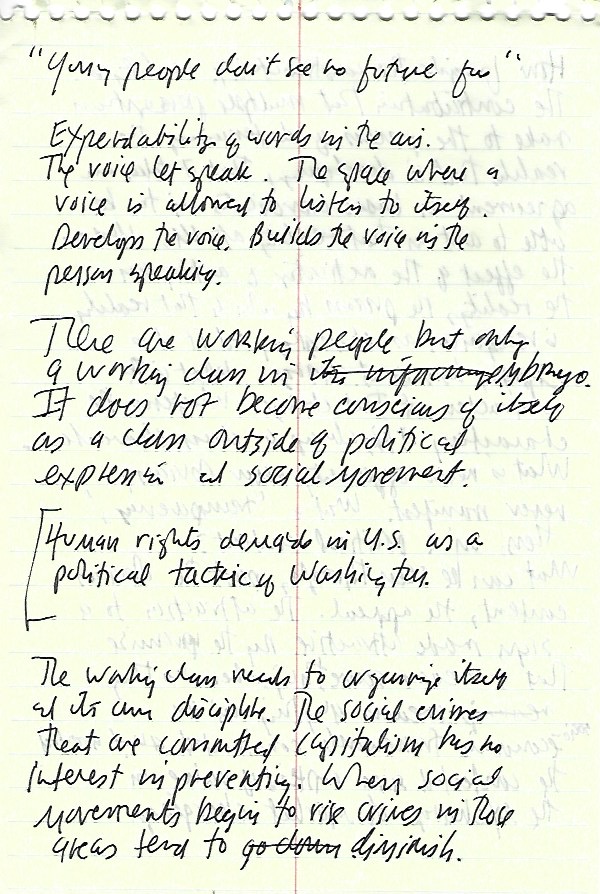 "Young people don't see no future for"
Expendability of words in the air.
The voice let speak. The space where a
voice is allowed to listen to itself.
Develops the voice. Builds the voice in the
person speaking.
There are working people but only
a working class in its infancy embryo.
It does not become conscious of itself
as a class outside of political
expression and social movement.
Human rights demands in U.S. as a
political tactic of Washington.
The working class needs to organize itself
and its own discipline. The social crimes
that are committed capitalism has no
interest in preventing. When social
movements begin to rise crimes in those
areas tend to go down diminish.